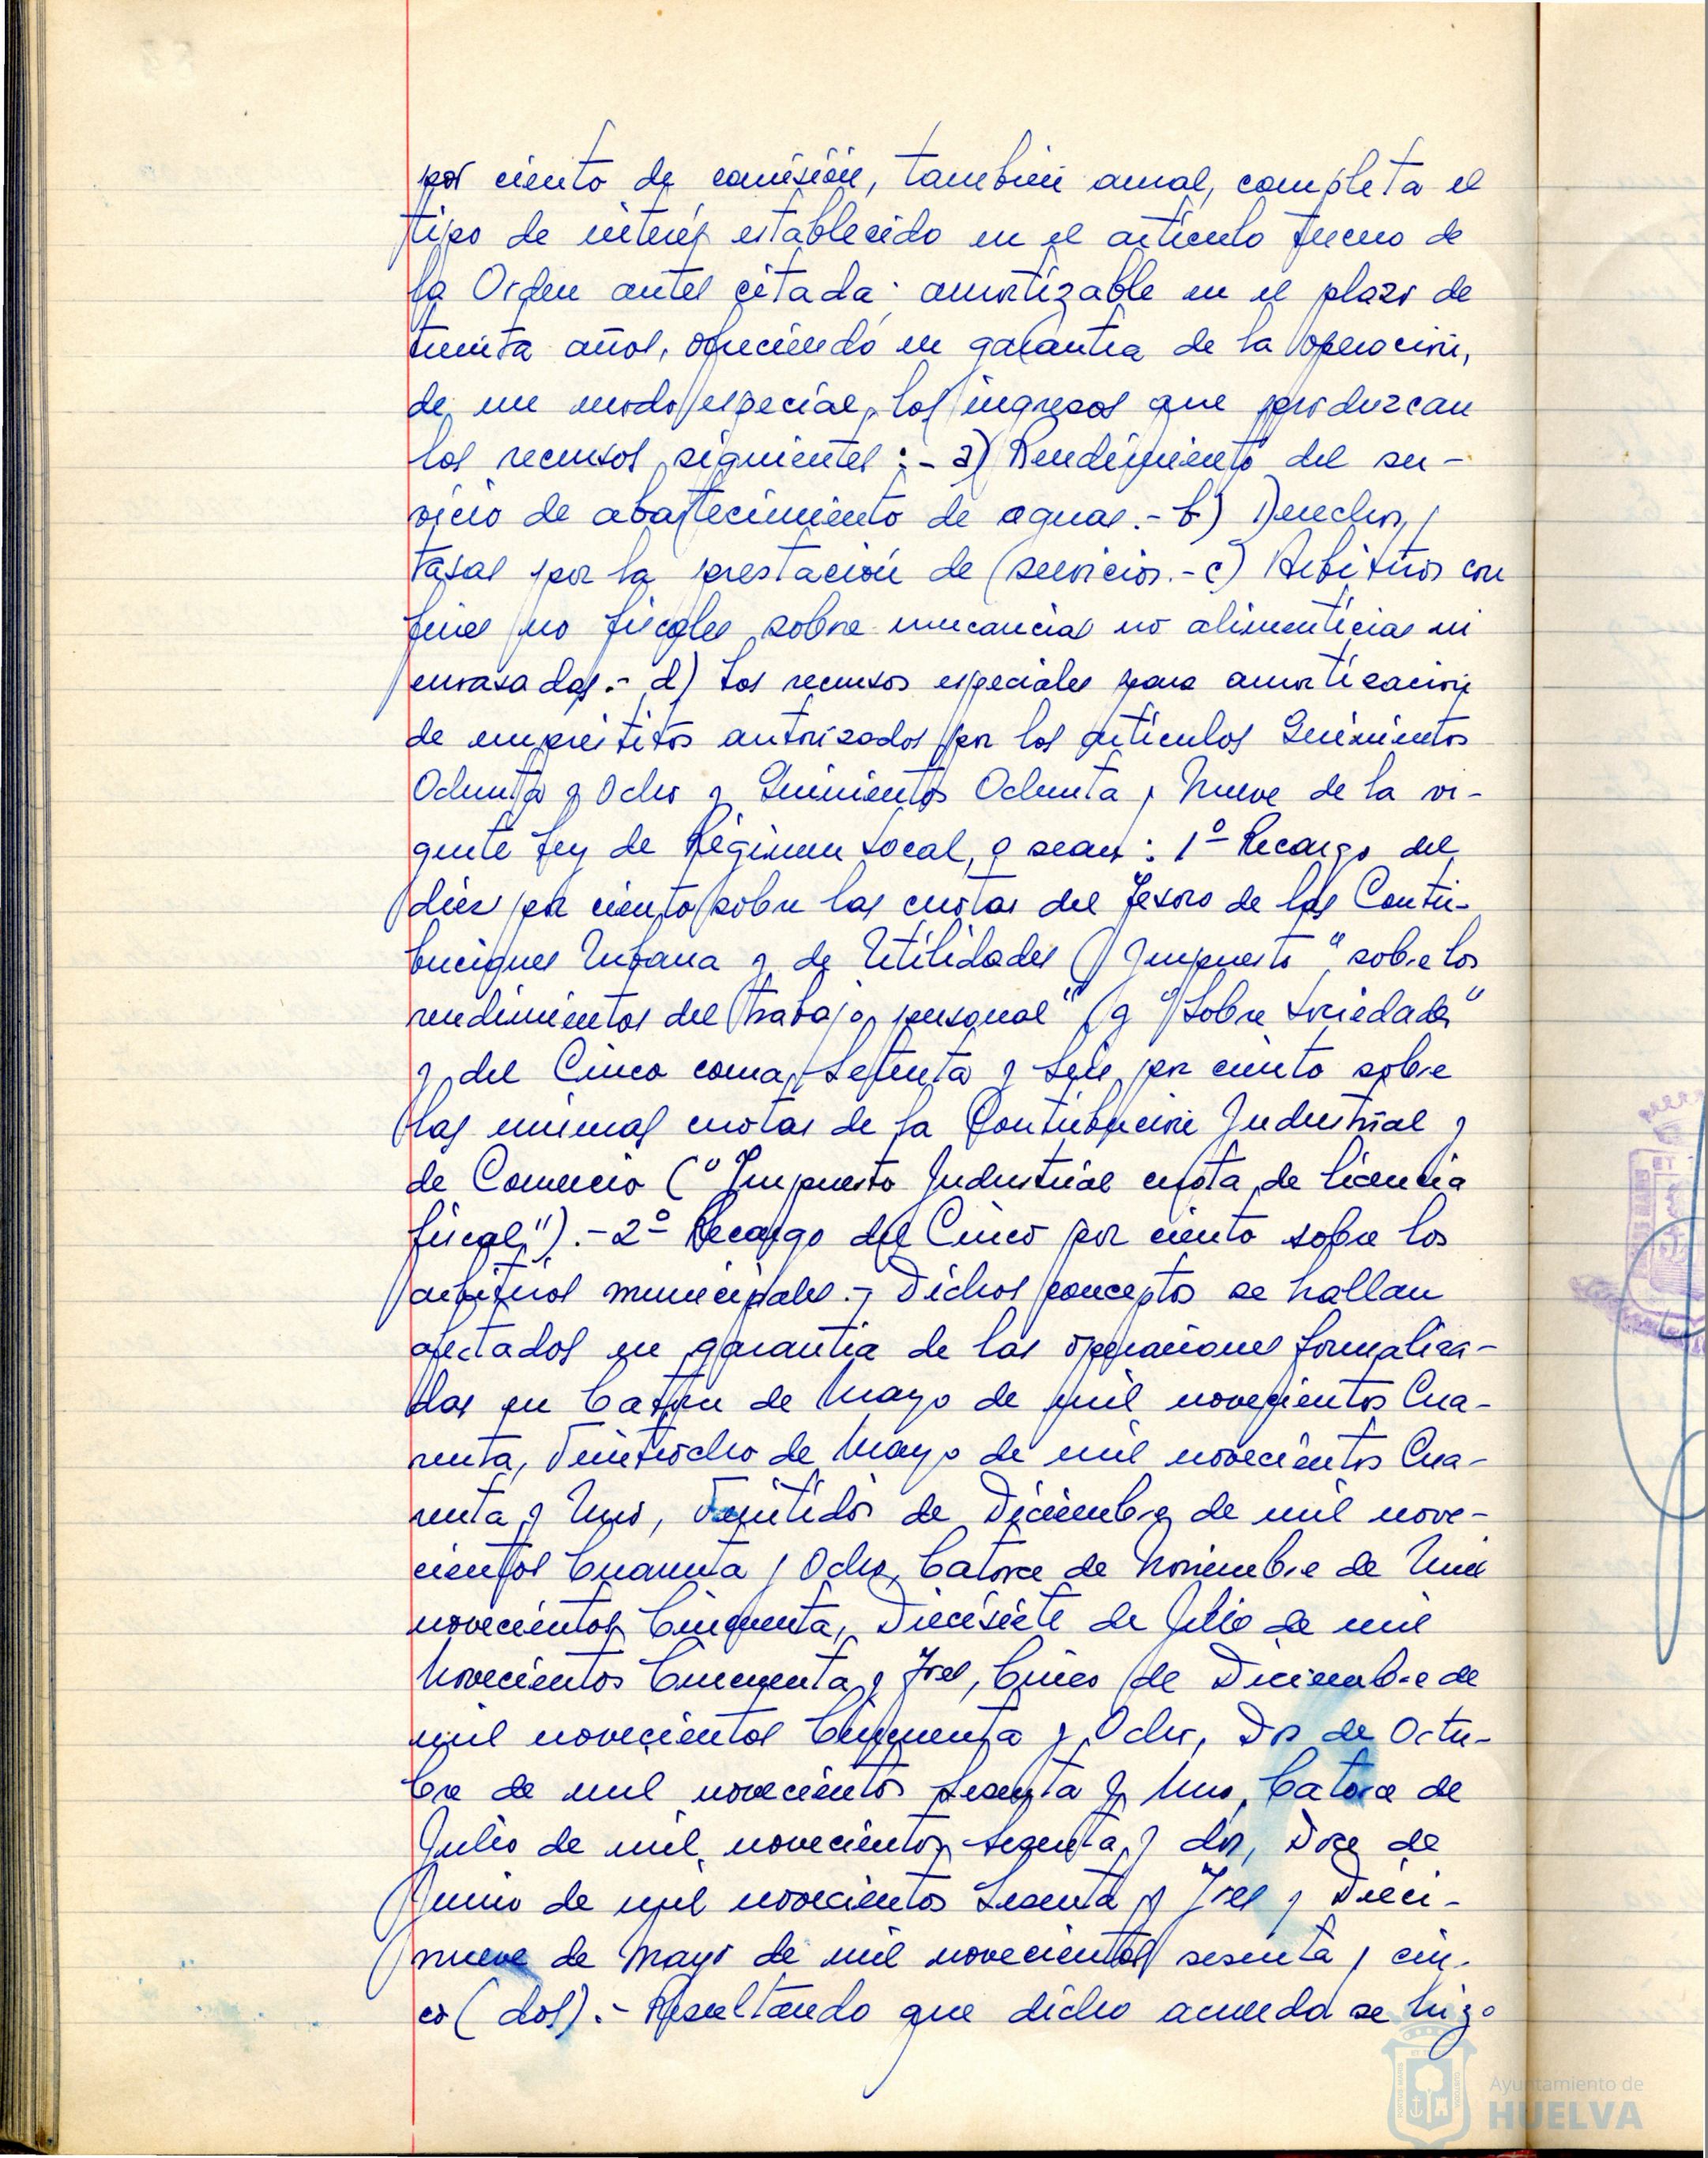 por ciento de comisión, tambien anual, completa el
tipo de interés establecido en el artículo tercero de
la Orden antes citada; amortizable en el plazo de
treinta años, ofreciendo en garantia de la operación,
de un modo especial, los ingresos que produzcan
los recursos siguientes :- a) Rendimiento del ser-
vicio de abastecimiento de aguas.- b) Derechos y
tasas por la prestación de servicios.- c) Arbitrios con
fines no fiscales sobre mercancias no alimenticias ni
envasadas.- d) Los recursos especiales para amortización
de empréstitos autorizados por los artículos Quinientos
Ochenta y Ocho y Quinientos Ochenta y Nueve de la vi-
gente Ley de Régimen Local, o sean: 1º Recargo del
diez por ciento sobre las cuotas del Tesoro de las Contri-
buciones Urbana y de Utilidades (Impuesto "sobre los
rendimientos del trabajo personal" y "Sobre Sociedades"
y del Cinco coma Setenta y Seis por ciento sobre
las mismas cuotas de la Contribución Industrial y
de Comercio ("Impuesto Industrial cuota de licencia
fiscal").- 2º Recargo del Cinco por ciento sobre los
arbitrios municipales.- Dichos conceptos se hallan
afectados en garantia de las operaciones formaliza-
das en Catorce de Mayo de mil novecientos Cua-
renta, Veintiocho de Mayo de mil novecientos Cua-
renta y Uno, Veintidós de Diciembre de mil nove-
cientos Cuarenta y Ocho, Catorce de Noviembre de Mil
novecientos Cincuenta, Diecisiete de Julio de mil
Novecientos Cincuenta y Tres, Cinco de Diciembre de
mil novecientos Cincuenta y Ocho, Dos de Octu-
bre de mil novecientos Sesenta y Uno, Catorce de
Julio de mil novecientos Sesenta y dos, Doce de
Junio de mil novecientos Sesenta y Tres y Dieci-
nueve de Mayo de mil novecientos sesenta y cin-
co (dos).- Resultando que dicho acuerdo se hizo
Ayuntamiento de
HUELVA